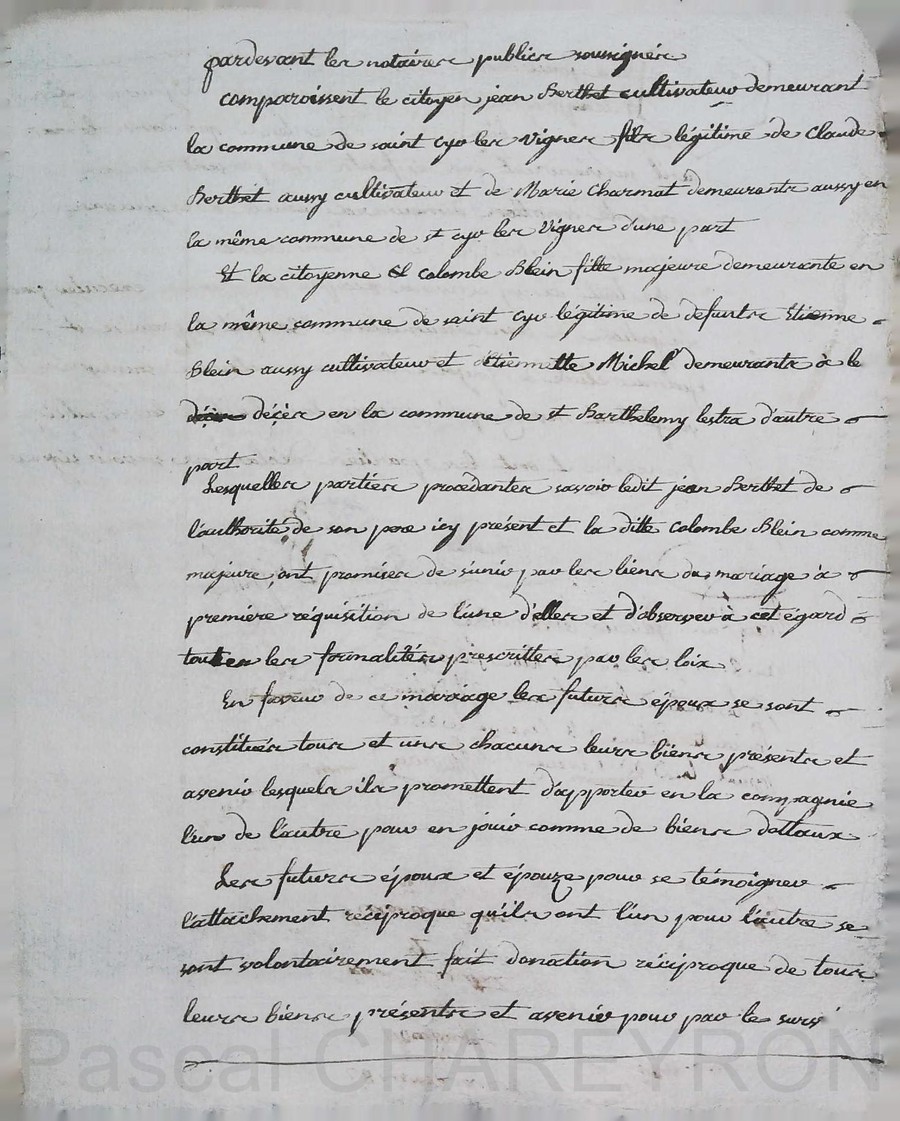 pardevant les notaires publics sousignés
comparoissent le citoyen jean Berthet cultivateur demeurant
la commune de saint cyr les Vignes fils légitime de Claude
Berthet aussy cultivateur et de Marie Charmat demeurants aussy en
la même commune de st cyr les Vignes d'une part
Et la citoyenne Colombe Blein fille majeure demeurante en
la même commune de saint cyr légitime de defunts Etienne
Blein aussy cultivateur et d'étiennette Michel demeurants à le
décès en la commune de st Barthelemy lestra d'autre
part
Lesquelles parties procédantes savoir ledit jean Berthet de
l'authorité de son pere icy présent et la ditte Colombe Blein comme
majeure, ont promises de s'unir par les liens du mariage à
première réquisition de l'une d'elles et d'observer à cet égard
toutes les formalités prescrittes par les loix
En faveur de ce mariage les futurs époux se sont
constitués tous et uns chacuns leurs biens présents et
avenir lesquels ils promettent d'apporter en la compagnie
l'un de l'autre pour en jouir comme de biens dottaux
Les futurs époux et épouze pour se témoigner
l'attachement réciproque qu'ils ont l'un pour l'autre se
sont volontairement fait donation réciproque de tous
leurs biens présents et avenir pour par le surv
Pascal CHAREYRON